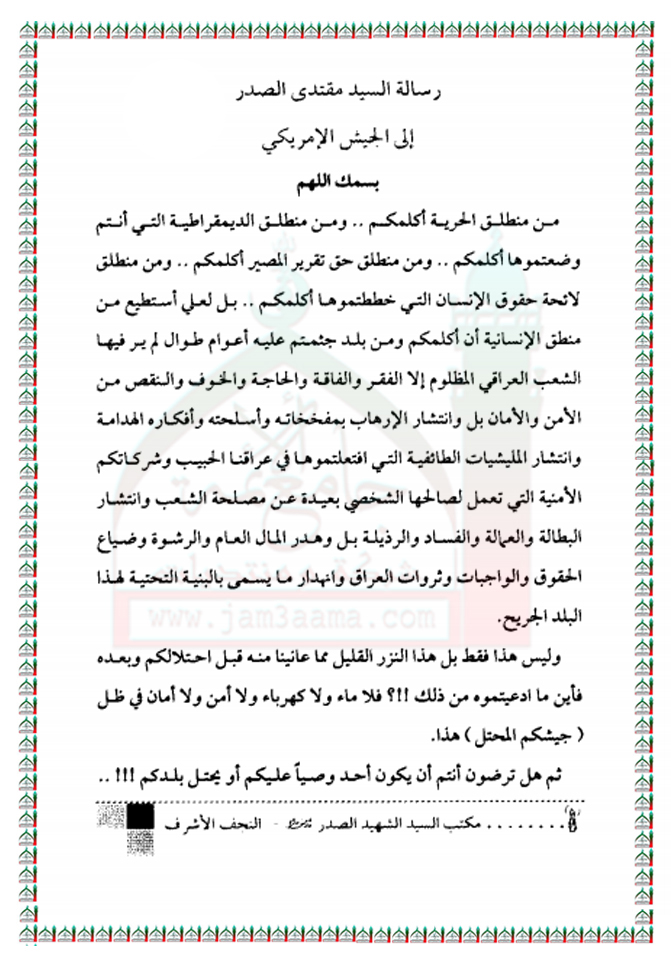 رسالة السيد مقتدى الصدر
إلى الجيش الإمريكي
بسمك اللهم
من منطلق الحرية أكلمكم .. ومن منطلق الديمقراطية التي أنتم
وضعتموها أكلمكم .. ومن منطلق حق تقرير المصير أكلمكم .. ومن منطلق
لائحة حقوق الإنسان التي خططتموها أكلمكم .. بل لعلي أستطيع من
منطق الإنسانية أن أكلمكم ومن بلد جثمتم عليه أعوام طوال لم ير فيها
الشعب العراقي المظلوم إلا الفقر والفاقة والحاجة والخوف والنقص من
الأمن والأمان بل وانتشار الإرهاب بمفخخاته وأسلحته وأفكاره الهدامة
وانتشار المليشيات الطائفية التي افتعلتموها في عراقنا الحبيب وشركاتكم
الأمنية التي تعمل لصالحها الشخصي بعيدة عن مصلحة الشعب وانتشار
البطالة والعمالة والفساد والرذيلة بل وهدر المال العام والرشوة وضياع
الحقوق والواجبات وثروات العراق وانهدار ما يسمى بالبنية التحتية لهذا
البلد الجريح.
وليس هذا فقط بل هذا النزر القليل مما عانينا منه قبل احتلالكم وبعده
فأين ما ادعيتموه من ذلك !!؟ فلا ماء ولا كهرباء ولا أمن ولا أمان في ظل
( جيشكم المحتل ) هذا.
ثم هل ترضون أنتم أن يكون أحد وصياً عليكم أو يحتل بلدكم !!! ..
........ مكتب السيد الشهيد الصدر - النجف الأشرف
www.jam3aama.com